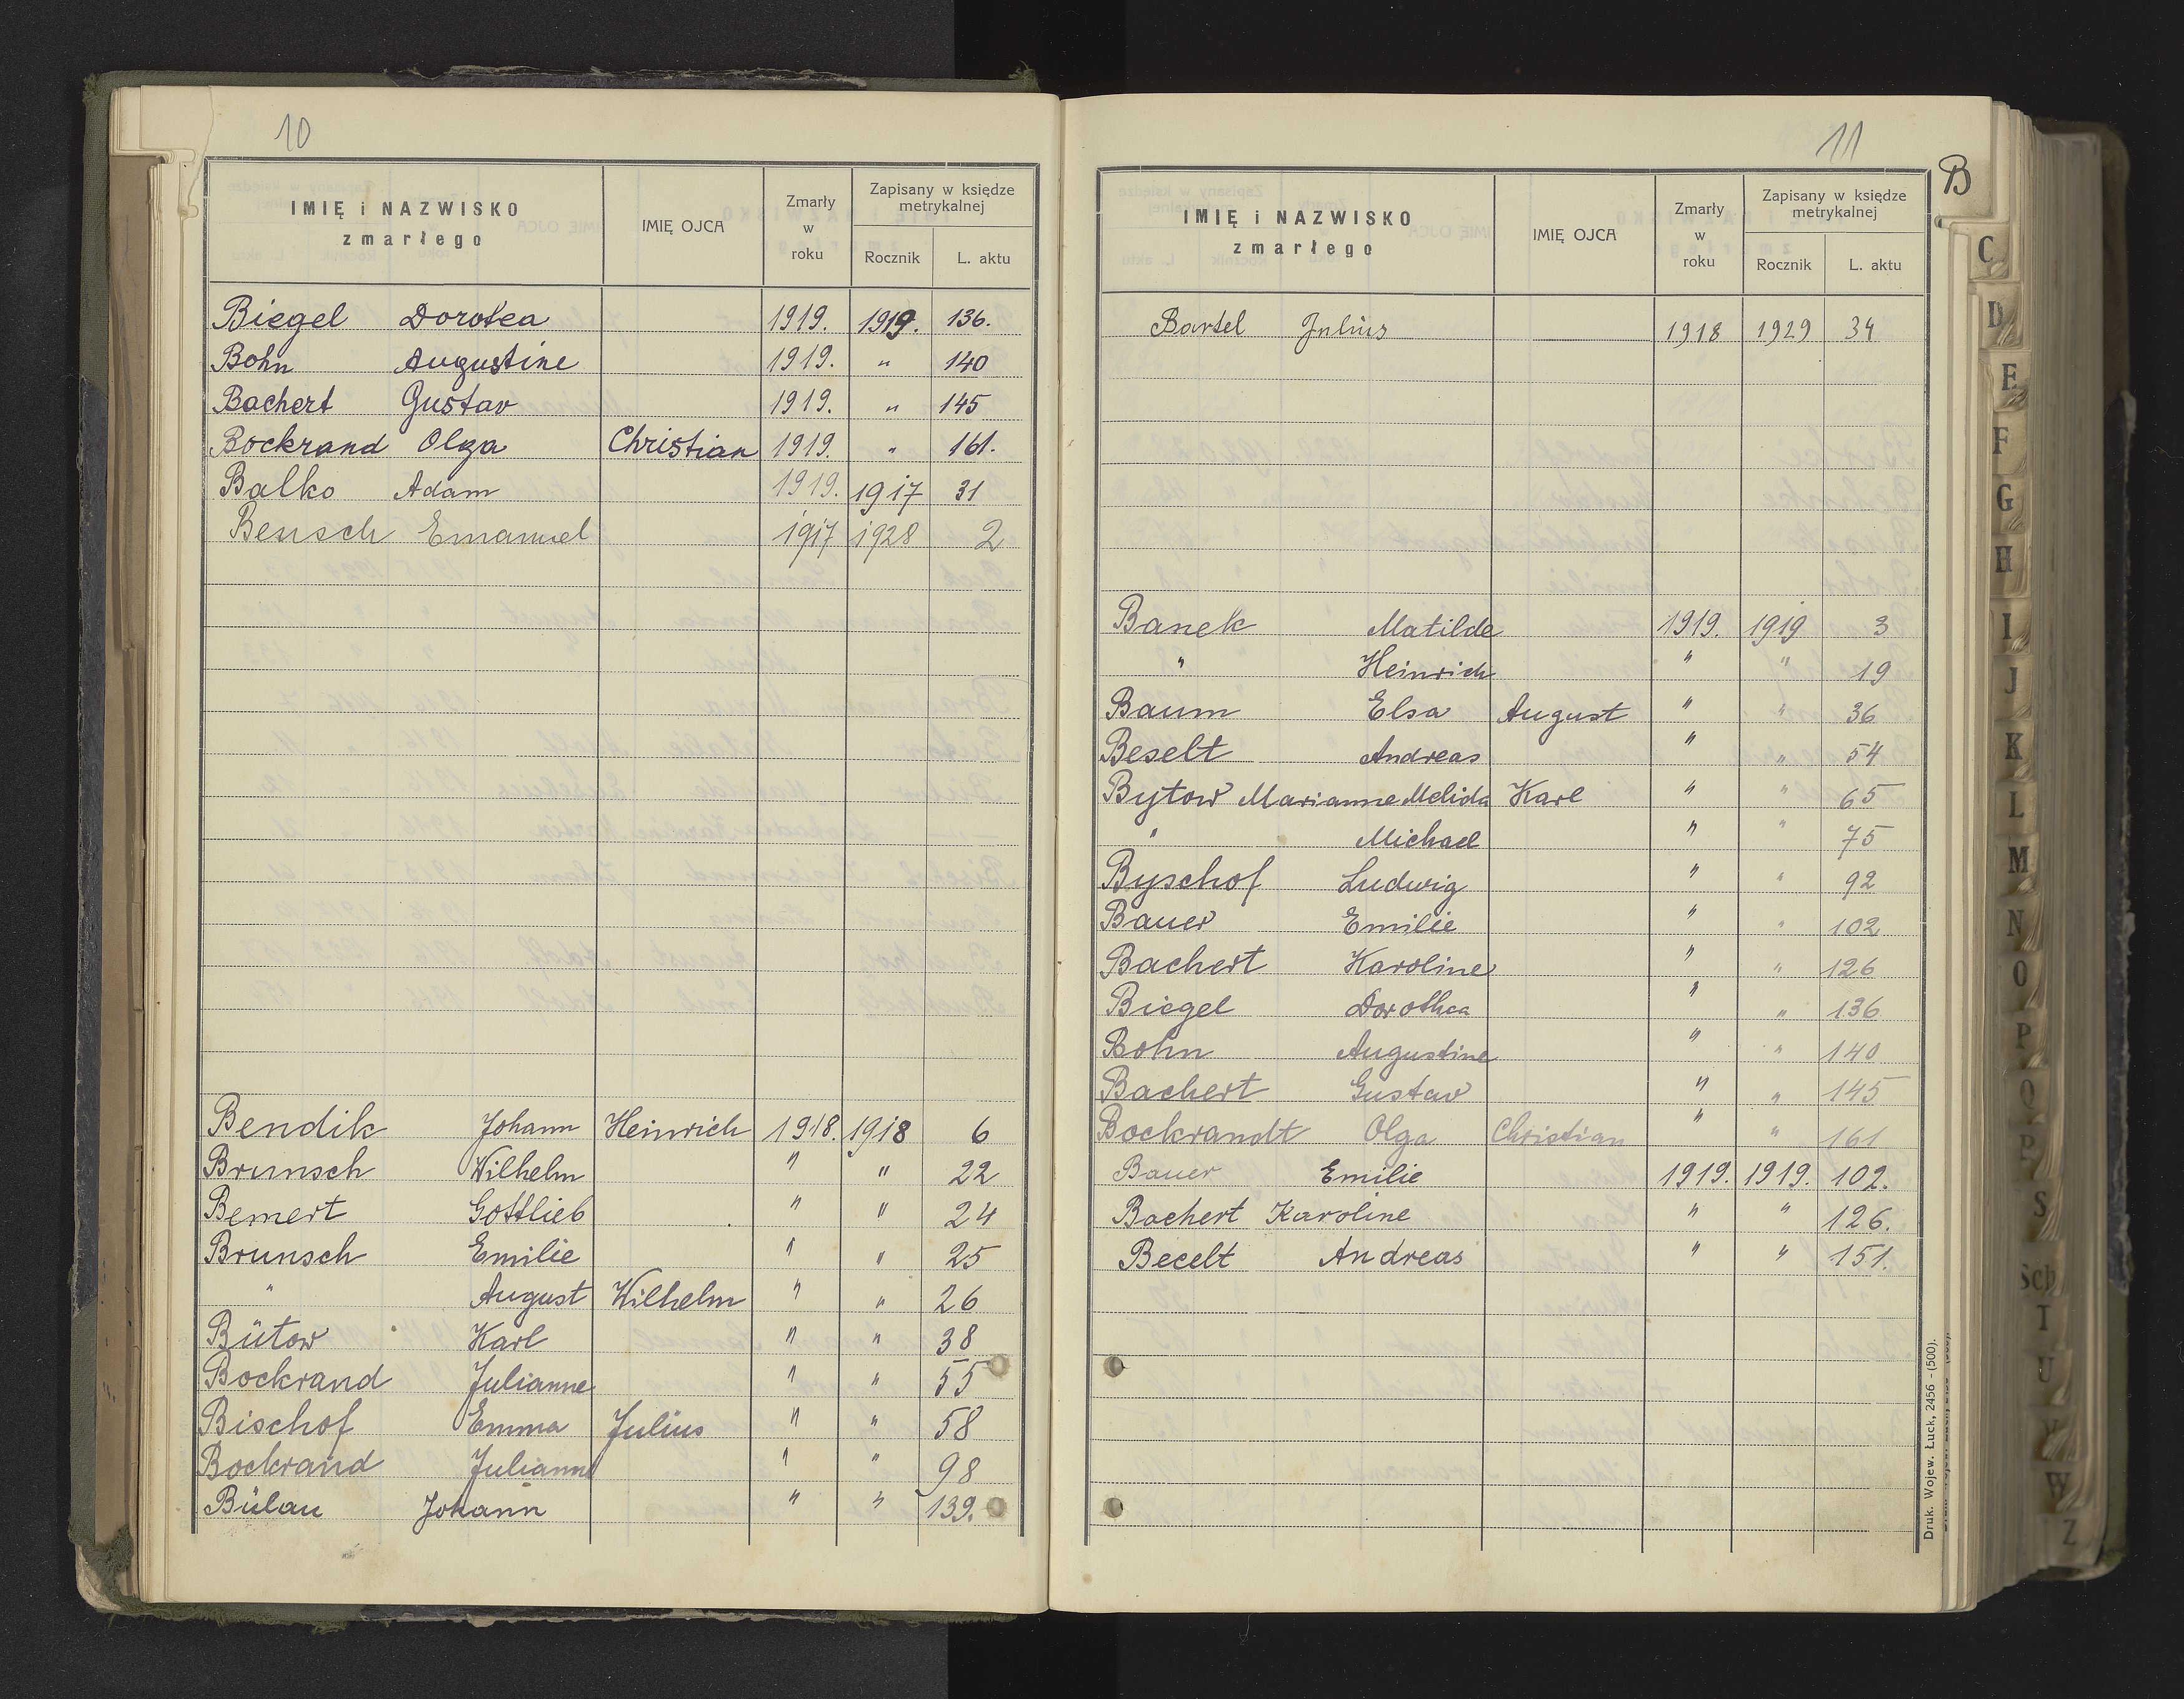 10
IMIĘ i NAZWISKO zmarłego | IMIĘ OJCA | Zmarły w roku | Zapisany w księdze metrykalnej | Rocznik | L. aktu
Biegel Dorotea 1919. 1919. 136.
Bohn Augustine 1919. " 140
Bachert Gustav 1919. " 145
Bockrand Olga Christian 1919. " 161.
Balko Adam 1919. 1917 31
Bensch Emanuel 1917 1928 2
Bendik Johann Heinrich 1918. 1918 6
Brunsch Wilhelm " " 22
Bemert Gottlieb " " 24
Brunsch Emilie " " 25
" August Wilhelm " " 26
Bütow Karl " " 38
Bockrand Julianne " " 55
Bischof Emma Julius " " 58
Bockrand Julianne " " 98
Bülau Johann " " 139.
11
B
IMIĘ i NAZWISKO zmarłego | IMIĘ OJCA | Zmarły w roku | Zapisany w księdze metrykalnej | Rocznik | L. aktu
Bartel Julius 1918 1929 34
Banek Matilde 1919. 1919 3
" Heinrich " " 19
Baum Elsa August " " 36
Beselt Andreas " " 54
Bytow Marianne Melida Karl " " 65
" Michael " " 75
Byschof Ludwig " " 92
Bauer Emilie " " 102
Bachert Karoline " " 126
Biegel Dorothea " " 136
Bohn Augustine " " 140
Bachert Gustaw " " 145
Bockrandt Olga Christian " " 161
Bauer Emilie 1919. 1919. 102.
Bachert Karoline " " 126.
Becelt Andreas " " 151.
Druk. Wojew. Łuck, 2456 - (500).
C
D
E
F
G
H
I
J
K
L
M
N
O
P
Q
R
S
Sch
T
U
V
W
Z